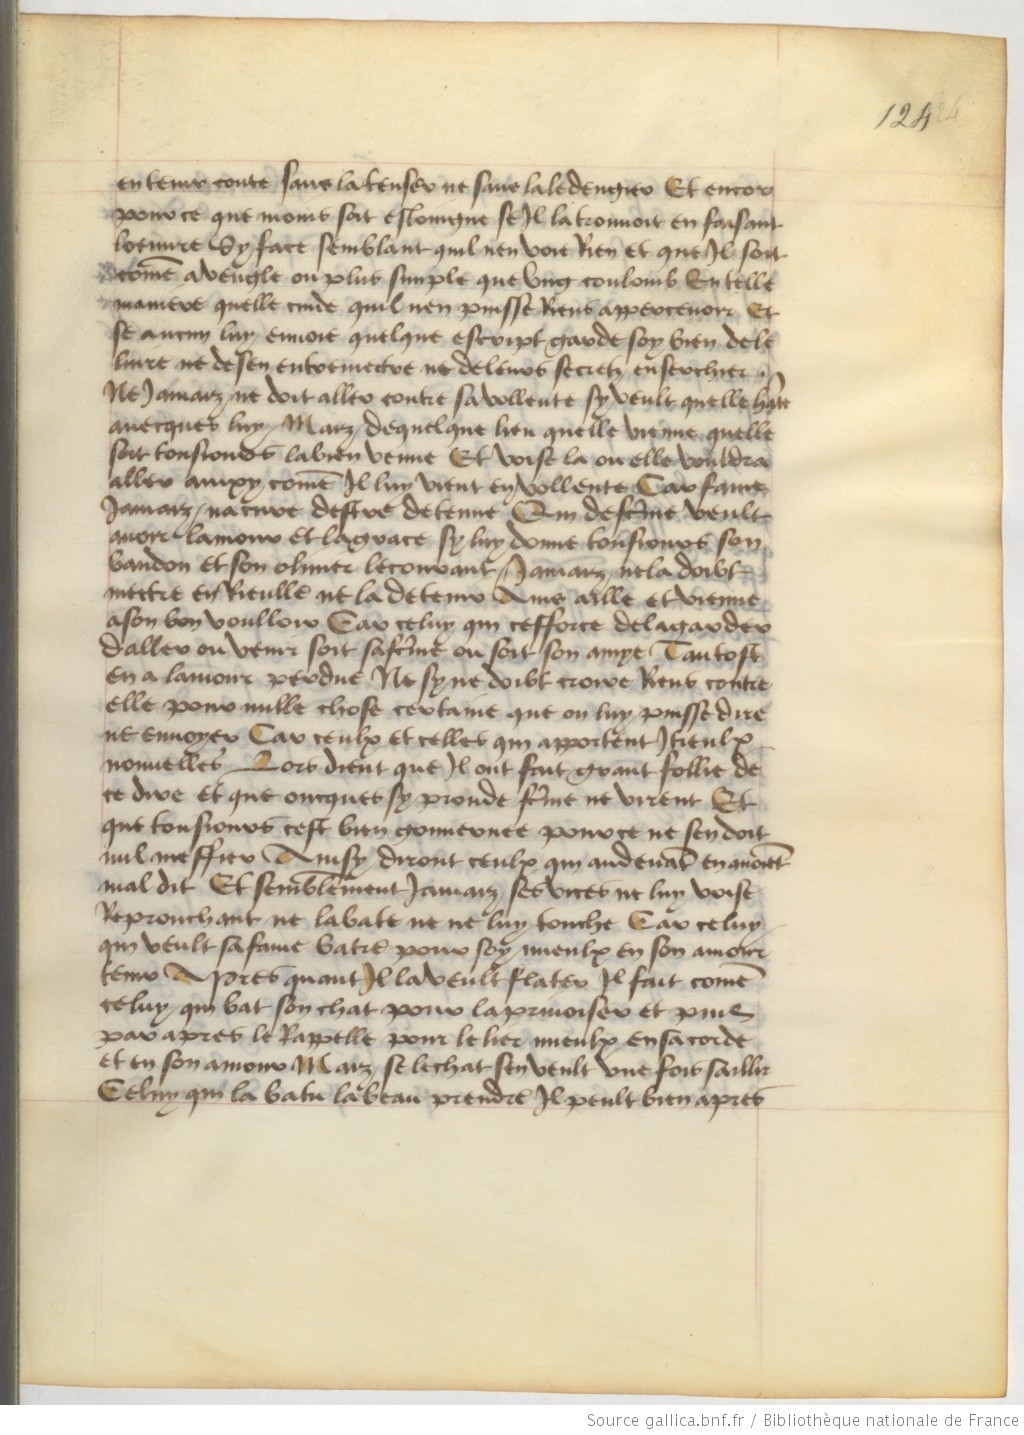 124
en tenir conte sans la tenser ne sans la ledengier Et encor
pour ce que moins soit eslongne se Il la trouvoit en faisant
loeuvre Sy face semblant quil nen voie Rien et que Il soit
come aveugle ou plus simple que ung coulomb En telle
maniere quelle cuide quil nen puisse Riens appercevoir Et
se aucun luy envoie quelque escript garde soy bien de le
livre ne de sen entremectre ne de leurs secretz enserchier
Ne Jamaiz ne doit aller contre sa vollente sy veult quelle hante
avecques luy Maiz de quelque lieu quelle vienne quelle
soit tousiours la bien venue Et voise la ou elle vouldra
aller ainxy come Il luy vient en vollente Car fame
Jamaiz na cure destre detenue Qui de feme veult
avoir lamour et la grace sy luy donne tousiours son
bandon et son olivier le couvant Jamaiz ne la doibt
mectre en Rieulle ne la detenir Ains aille et vienne
a son bon voulloir Car celuy qui cefforce de la garder
daller ou venir soit sa feme ou soit son amye Tantost
en a lamour perdue Ne sy ne doibt croire Riens contre
elle pour nulle chose certaine que on luy puisse dire
ne envoyer Car ceulx et celles qui apportent Itieulx
nouvelles Lors dient que Il ont fait grant follie de
ce dire et que oncques sy preude feme ne virent Et
que tousiours cest bien gouvernee pour ce ne sen doit
nul meffier Ainsy diront ceulx qui au devant en avoient
mal dit Et semblement Jamaiz ses vices ne luy voise
Reprouchant ne la bate ne ne luy touche Car celuy
qui veult sa fame batre pour soy mieulx en son amour
tenir Apres quant Il la veult flater Il fait come
celuy qui bat son chat pour la privoiser et puis
par apres le Rappelle pour le lier mieulx en sa corde
et en son amour Maiz se le chat sen veult une fois saillir
Celuy qui la batu la beau prendre Il peult bien apres
Source gallica.bnf.fr / Bibliothèque nationale de France